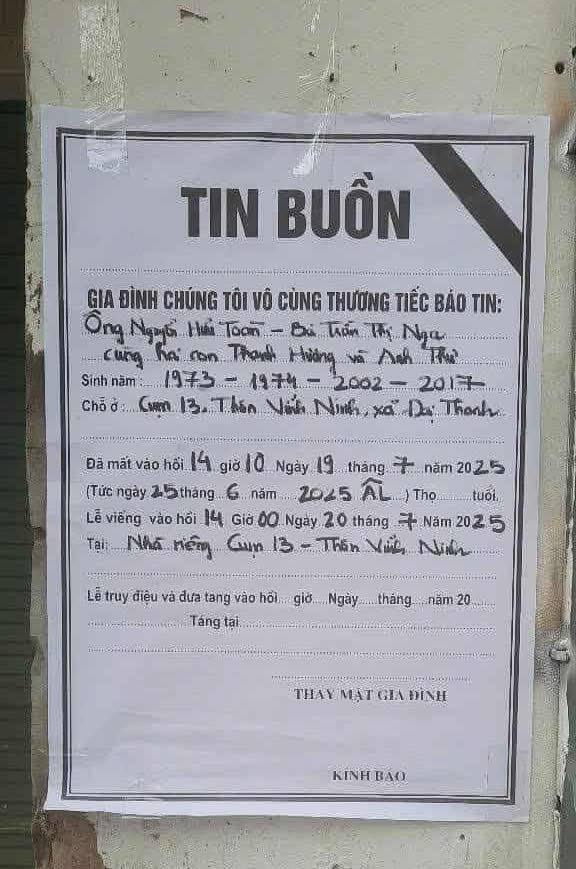 TIN BUỒN
GIA ĐÌNH CHÚNG TÔI VÔ CÙNG THƯƠNG TIẾC BÁO TIN:
Ông Nguyễn Hữu Toàn - Bà Trần Thị Nga
cùng hai con Thanh Hương và Anh Thư
Sinh năm: 1973 - 1974 - 2002 - 2017
Chỗ ở: Cụm 13. Thôn Vĩnh Ninh, xã Đại Thanh
Đã mất vào hồi 14 giờ 10 Ngày 19 tháng 7 năm 2025
(Tức ngày 25 tháng 6 năm 2025 ÂL ) Thọ tuổi.
Lễ viếng vào hồi 14 Giờ 00 Ngày 20 tháng 7 Năm 2025
Tại: Nhà riêng Cụm 13 - Thôn Vĩnh Ninh
Lễ truy điệu và đưa tang vào hồi giờ Ngày tháng năm 20
Táng tại
THAY MẶT GIA ĐÌNH
KÍNH BÁO